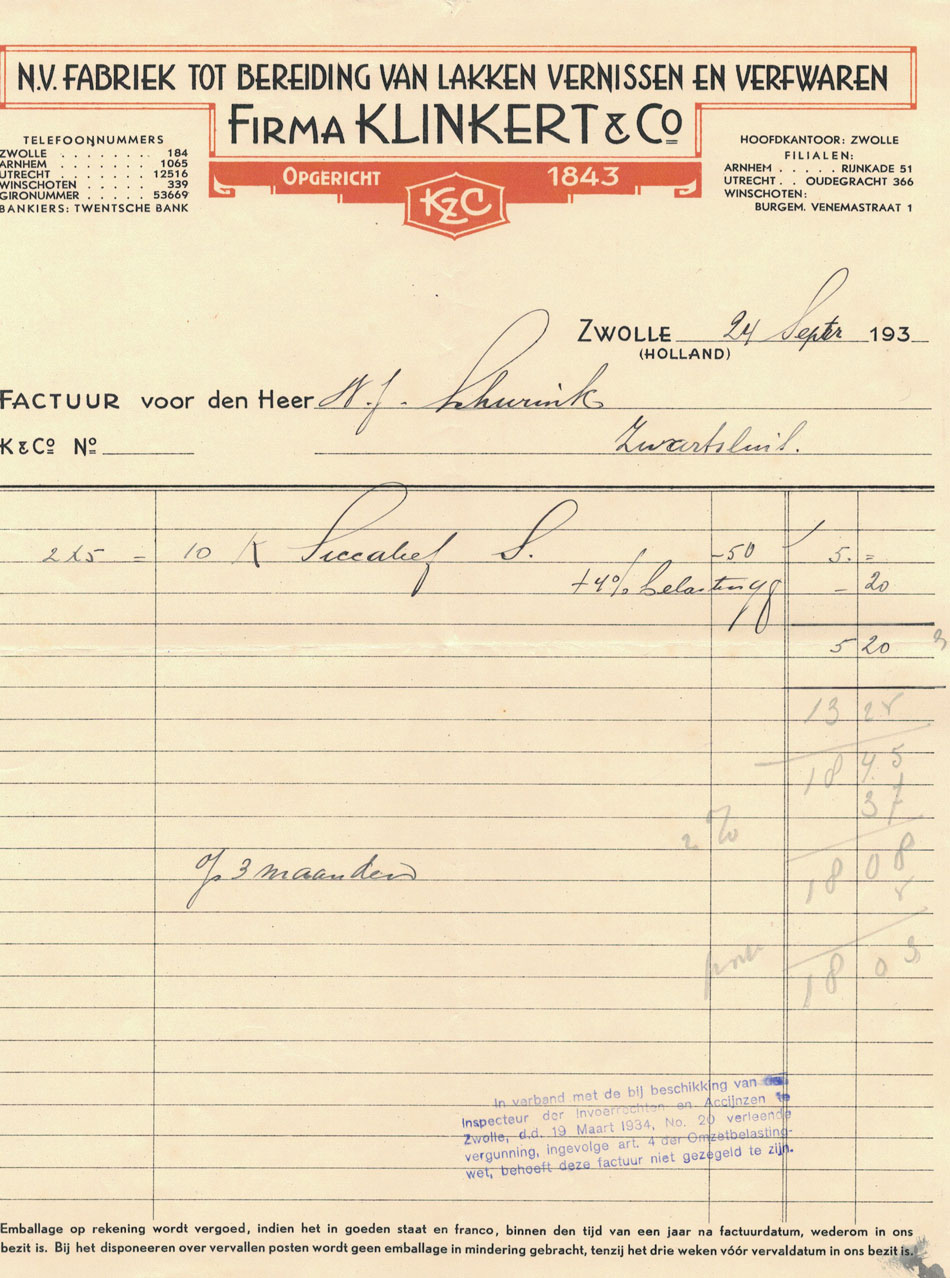 N.V. FABRIEK TOT BEREIDING VAN LAKKEN VERNISSEN EN VERFWAREN
FIRMA KLINKERT & CO
OPGERICHT 1843
KZC
TELEFOONNUMMERS
ZWOLLE . . . . . . . 184
ARNHEM . . . . . . 1065
UTRECHT . . . . . . 12516
WINSCHOTEN . . . . . 339
GIRONUMMER . . . . . 53669
BANKIERS: TWENTSCHE BANK
HOOFDKANTOOR: ZWOLLE
FILIALEN:
ARNHEM . . . . . RIJNKADE 51
UTRECHT . . OUDEGRACHT 366
WINSCHOTEN:
BURGEM. VENEMASTRAAT 1
ZWOLLE 24 Septr 193
(HOLLAND)
FACTUUR voor den Heer W. J. Schurink
K & Co No Zwartsluis.
2 x 5 = 10 K Siccatief S. -50 5. =
+ 4% belasting - 20
5 20
13 25
18 45
37
2 %
18 08
op 3 maanden
18 03
In verband met de bij beschikking van
Inspecteur der Invoerrechten en Accijnzen te
Zwolle, d.d. 19 Maart 1934, No. 20 verleende
vergunning, ingevolge art. 4 der Omzetbelasting-
wet, behoeft deze factuur niet gezegeld te zijn.
Emballage op rekening wordt vergoed, indien het in goeden staat en franco, binnen den tijd van een jaar na factuurdatum, wederom in ons
bezit is. Bij het disponeeren over vervallen posten wordt geen emballage in mindering gebracht, tenzij het drie weken vóór vervaldatum in ons bezit is.